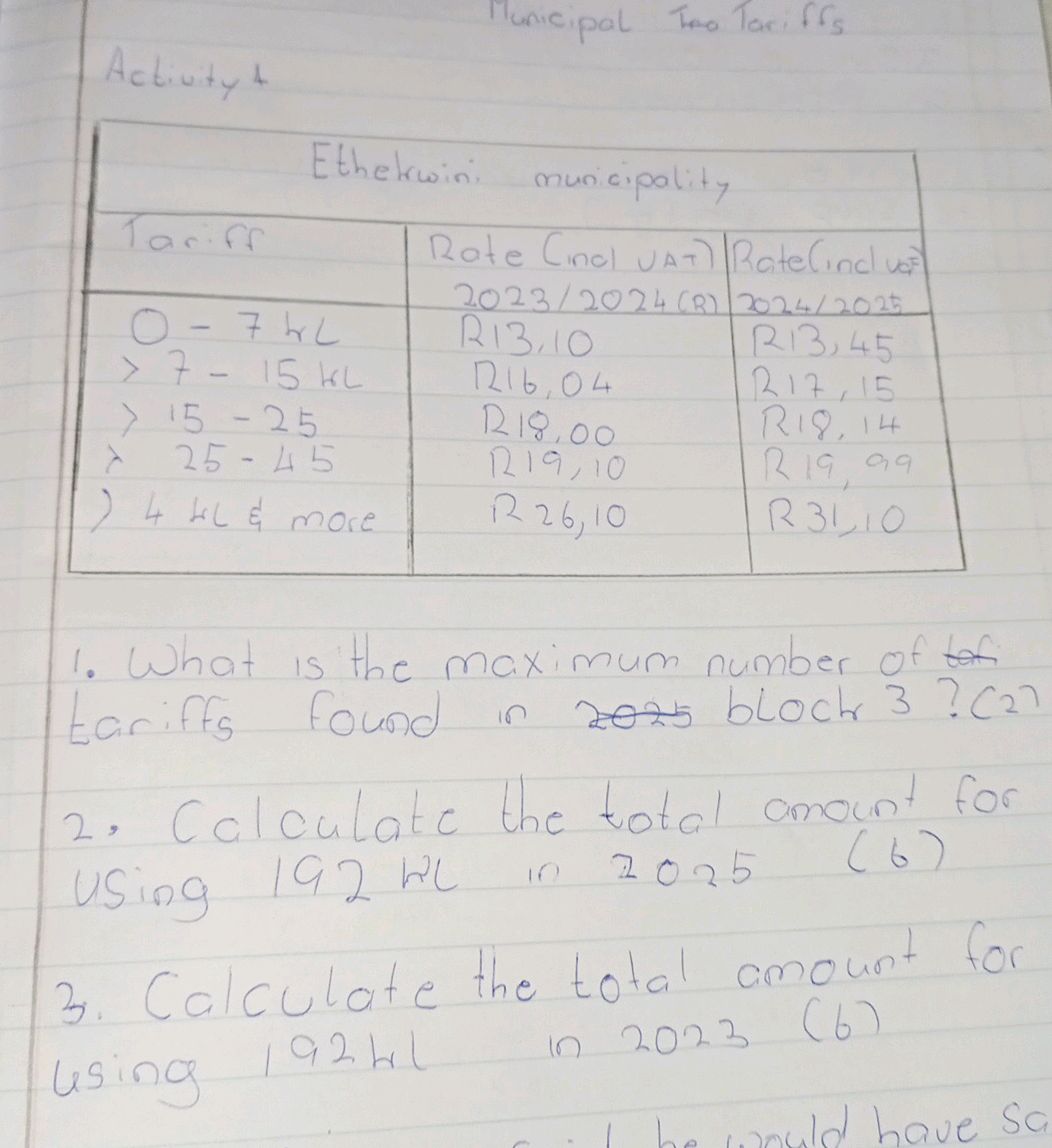 Municipal Tariffs
Activity 1
Ethekwini municipality
Tariff Rate (incl VAT) 2023/2024 (R) Rate (incl VAT) 2024/2025
0 - 7 kL R13,10 R13,45
> 7 - 15 kL R16,04 R17,15
> 15 - 25 R18,00 R18,14
> 25 - 45 R19,10 R19,99
> 4 kL & more R26,10 R31,10
1. What is the maximum number of
tariffs found in 2025 block 3 ? (2)
2. Calculate the total amount for
using 192 kL in 2025 (6)
3. Calculate the total amount for
using 192kl in 2023 (6)
he would have sa